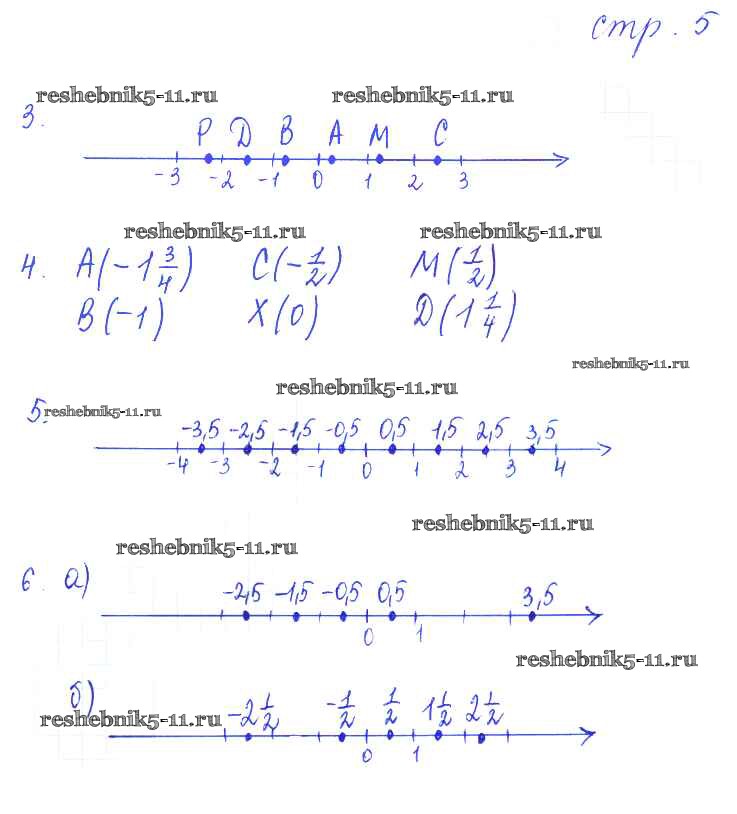 стр. 5
reshebnik5-11.ru reshebnik5-11.ru
3.
P D B A M C
-3 -2 -1 0 1 2 3
reshebnik5-11.ru reshebnik5-11.ru
4. A(-1 3/4) C(-1/2) M(1/2)
B(-1) X(0) D(1 1/4)
reshebnik5-11.ru
reshebnik5-11.ru
5. reshebnik5-11.ru
-3,5 -2,5 -1,5 -0,5 0,5 1,5 2,5 3,5
-4 -3 -2 -1 0 1 2 3 4
reshebnik5-11.ru
reshebnik5-11.ru
6. а)
-2,5 -1,5 -0,5 0,5 3,5
0 1
reshebnik5-11.ru
б)
reshebnik5-11.ru
-2 1/2 -1/2 1/2 1 1/2 2 1/2
0 1